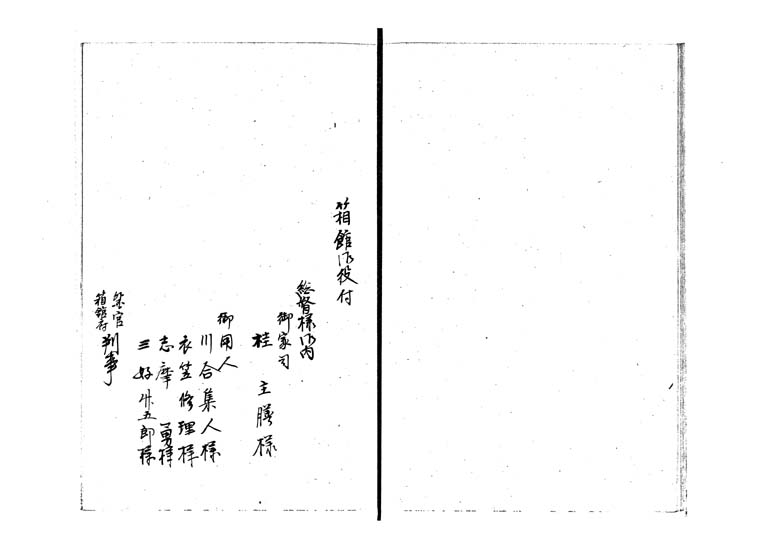 箱館御役付
総督様御内
御家司
桂 主膳様
御用人
川合集人様
衣笠修理様
志摩 勇様
三好 五郎様
箱館府 判事